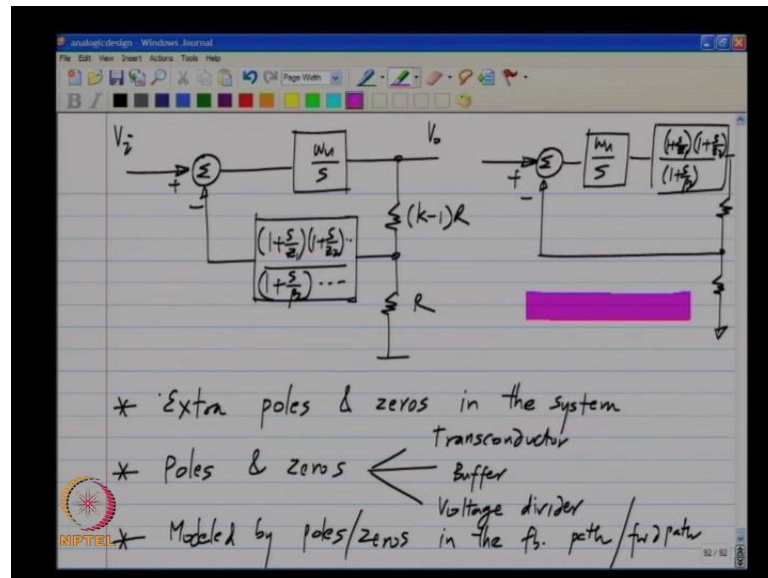 analogicdesign - Windows Journal
File Edit View Insert Actions Tools Help
Page Width
B I
V_i + Σ - ω_u/s V_o
(k-1)R
(1+s/z_1)(1+s/z_2)..
(1+s/p_2) ...
R
+ Σ - ω_u/s (1+s/z_1)(1+s/z_2)
(1+s/p_2)
* Extra poles & zeros in the system
* Poles & zeros
Transconductor
Buffer
Voltage divider
* Modeled by poles/zeros in the fb. path/fwd path
NPTEL
92 / 92